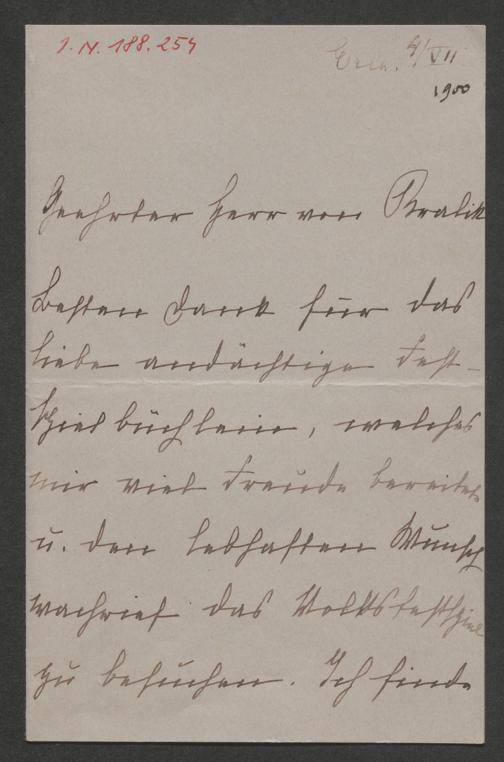 J.N. 188.254
4/VII
1900
Geehrter Herr von Kralik
Besten Dank für das
liebe andächtige Fest-
spielbüchlein, welches
mir viel Freude bereitet
u. den lebhaften Wunsch
wachrief das Volksfestspiel
zu besuchen. Ich finde